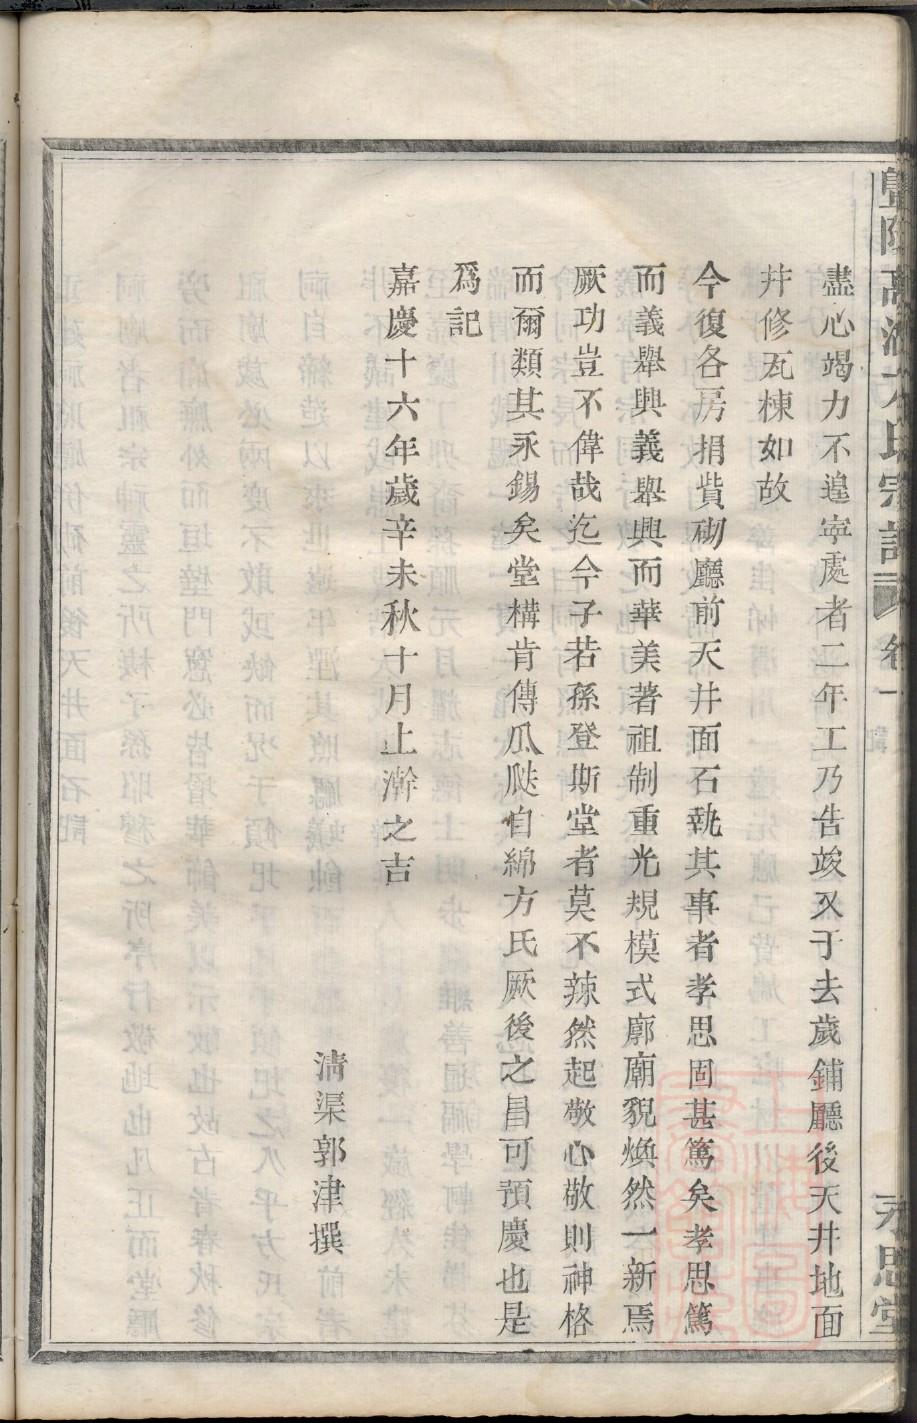 盡心竭力不遑寧處者二年工乃告竣又于去歲鋪廳後天井地面
并修瓦棟如故
今復各房捐貲砌廳前天井面石執其事者孝思固甚篤矣孝思篤
而義舉興義舉興而華美著祖制重光規模式廓廟貌煥然一新焉
厥功豈不偉哉迄今子若孫登斯堂者莫不竦然起敬心敬則神格
而爾類其永錫矣堂構肯傳瓜瓞自綿方氏厥後之昌可預慶也是
爲記
嘉慶十六年歲辛未秋十月上澣之吉
清渠郭津撰
方氏宗譜 卷一
永思堂